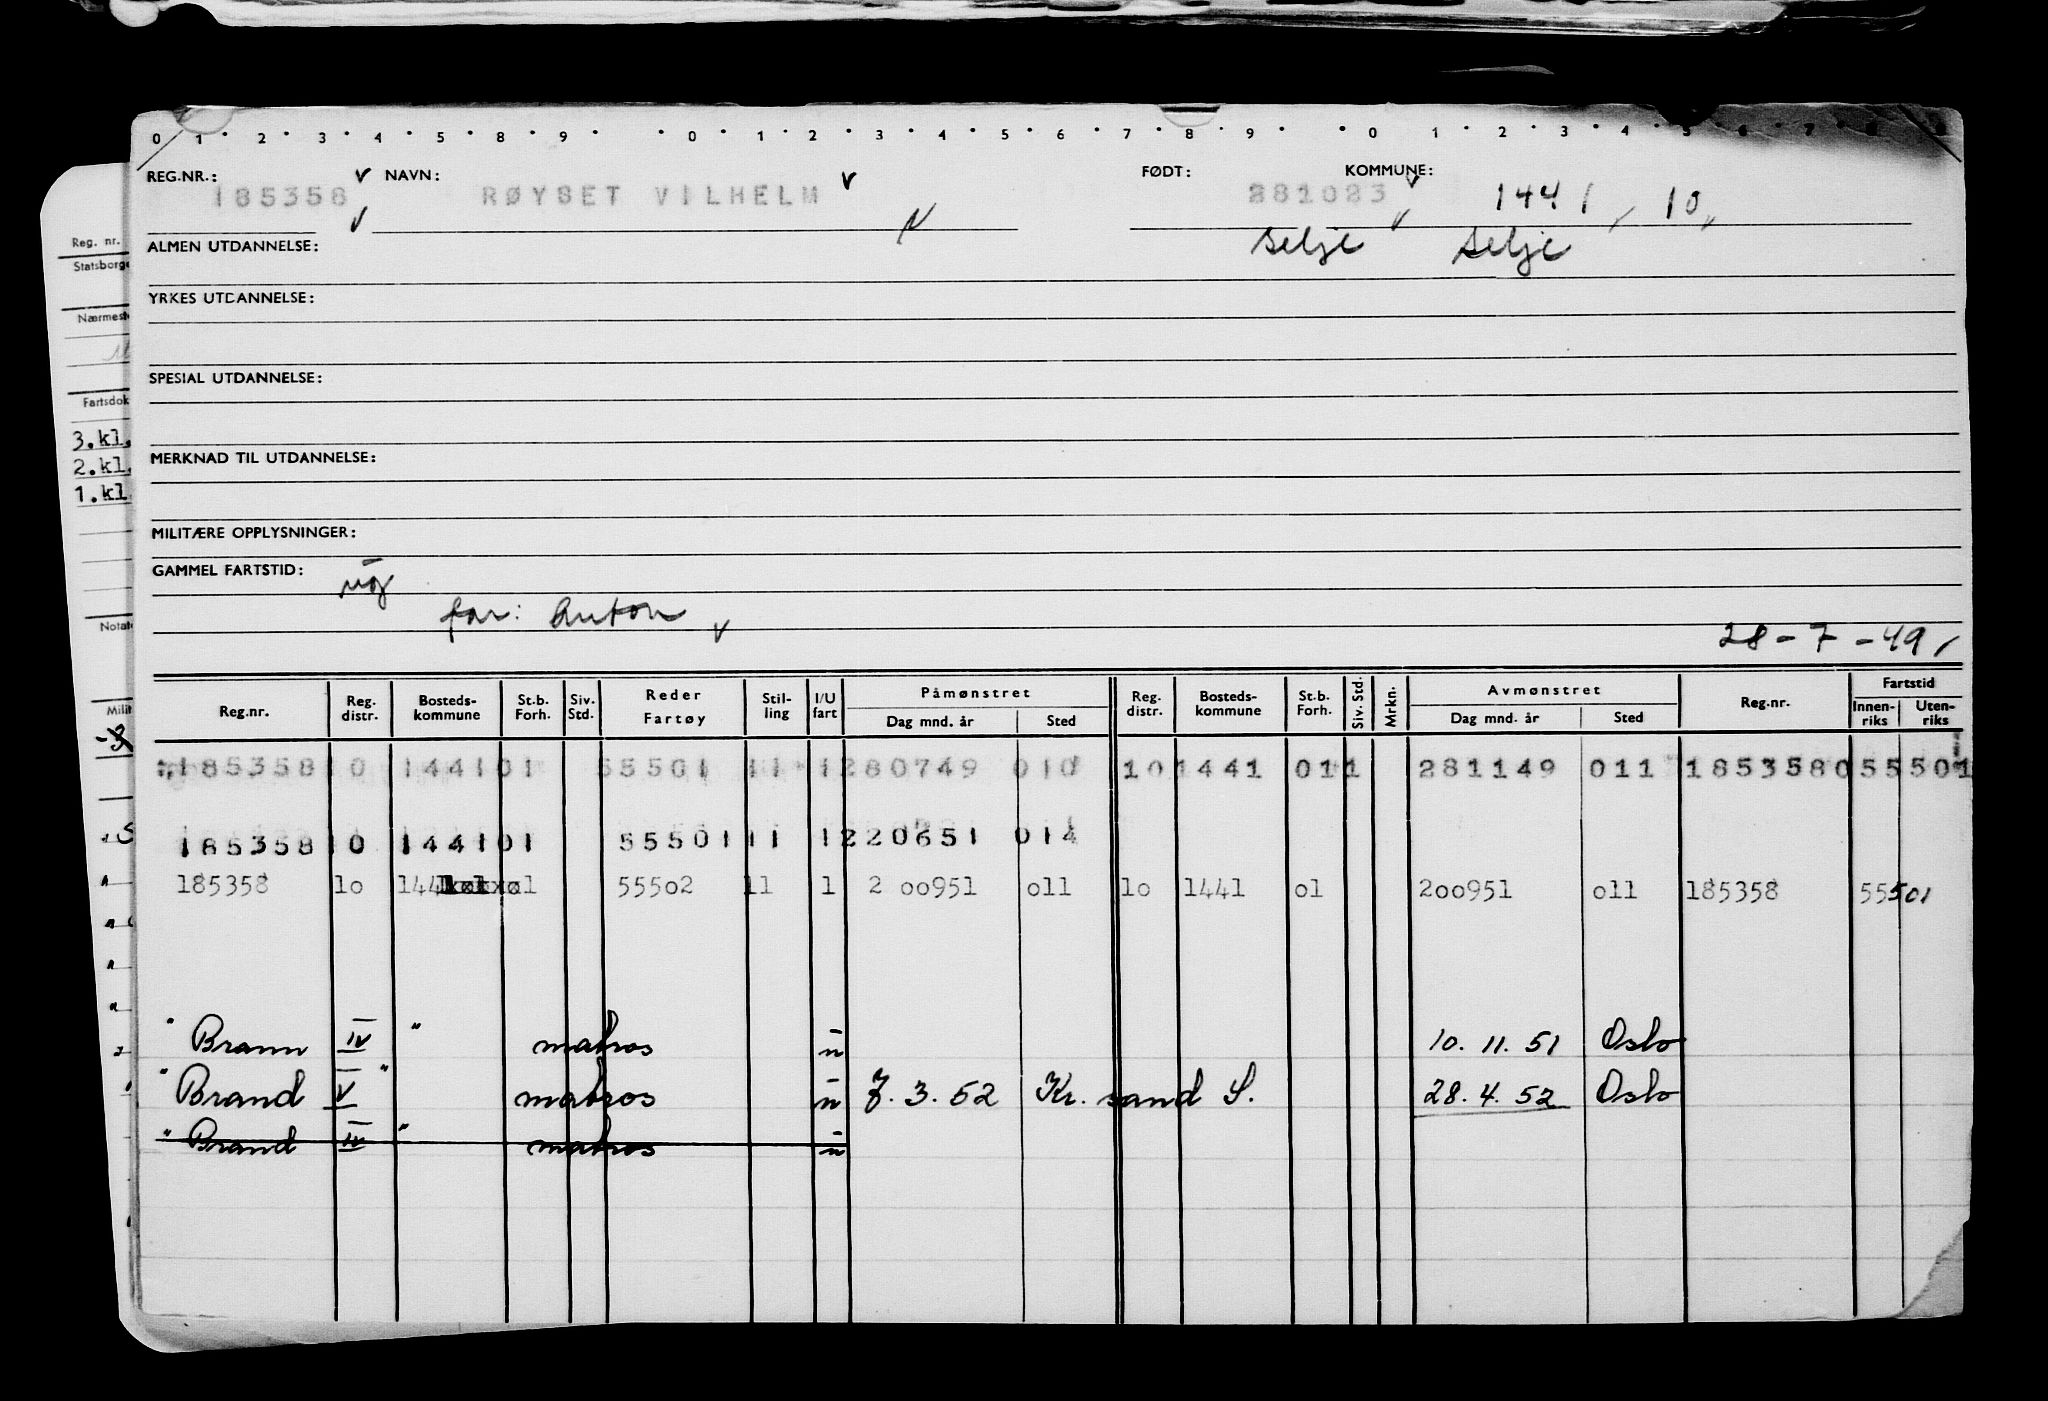 0 1 2 3 4 5 8 9 0 1 2 3 4 5 6 7 8 9 0 1 2 3 4 5 6 7 8 9
REG.NR.: 185358 NAVN: RØYSET VILHELM FØDT: 281023 KOMMUNE: 1441 10
ALMEN UTDANNELSE: Selje Selje
YRKES UTDANNELSE:
SPESIAL UTDANNELSE:
MERKNAD TIL UTDANNELSE:
MILITÆRE OPPLYSNINGER:
GAMMEL FARTSTID:
far: Anton
28-7-49
Reg.nr. Reg. distr. Bosteds-kommune St.b. Forh. Siv. Std. Reder Fartøy Stil-ling I/U fart Påmønstret Dag mnd. år Sted Reg. distr. Bosteds-kommune St.b. Forh. Siv. Std. Mrkn. Avmønstret Dag mnd. år Sted Reg.nr. Fartstid Innen-riks Uten-riks
185358 10 144101 55501 11 1 280749 010 10 1441 011 281149 011 1853580 55501
185358 10 144101 55501 11 1 220651 014
185358 lo 144 ol 55502 11 1 2 oo951 oll lo 1441 ol 2oo951 oll 185358 55501
" Brann IV " matros u 10.11.51 Oslo
" Brand V " matros u 7.3.52 Kr. sand S. 28.4.52 Oslo
" Brand IV " matros u
Reg. nr.
Statsborge
Nærmest
Fartsdok
3.kl.
2.kl.
1.kl
Notat
Milit